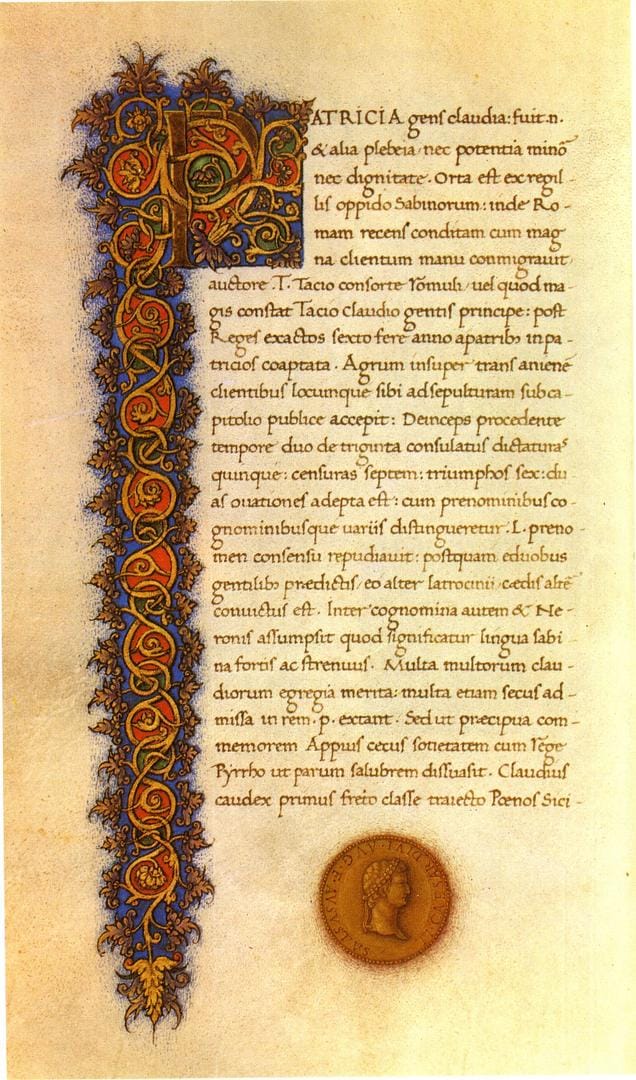 PATRICIA gens claudia: fuit.n.
& alia plebeia/ nec potentia minō
nec dignitate. Orta est ex regil-
lis oppido Sabinorum: inde Ro-
mam recens conditam cum mag
na clientum manu conmigrauit/
auctore .T. Tacio consorte rōmuli/ uel quod ma-
gis constat Tacio Claudio gentis principe: post
Reges exactos sexto fere anno apatrib; in pa-
tricios coaptata. Agrum insuper trans anienē
clientibus locumque sibi ad sepulturam sub ca-
pitolio publice accepit: Deinceps procedente
tempore duo de triginta consulatus dictaturas
quinque: censuras septem: triumphos sex: du
as ouationes adepta est: cum prenominibus co-
gnominibusque uariis distingueretur. L. preno-
men consensu repudiauit: postquam eduobus
gentilib; prædictis/ eo alter latrocinii/ cædis altē
conuictus est. Inter cognomina autem & Ne-
ronis assumpsit quod significatur lingua sabi
na fortis ac strenuus. Multa multorum clau-
diorum egregia merita: multa etiam secus ad-
missa in rem .p. extant. Sed ut præcipua com-
memorem Appius cecus sotietatem cum rēge
Pyrrho ut parum salubrem dissuasit. Claudius
caudex primus freto classe traiecto Pœnos Sici-